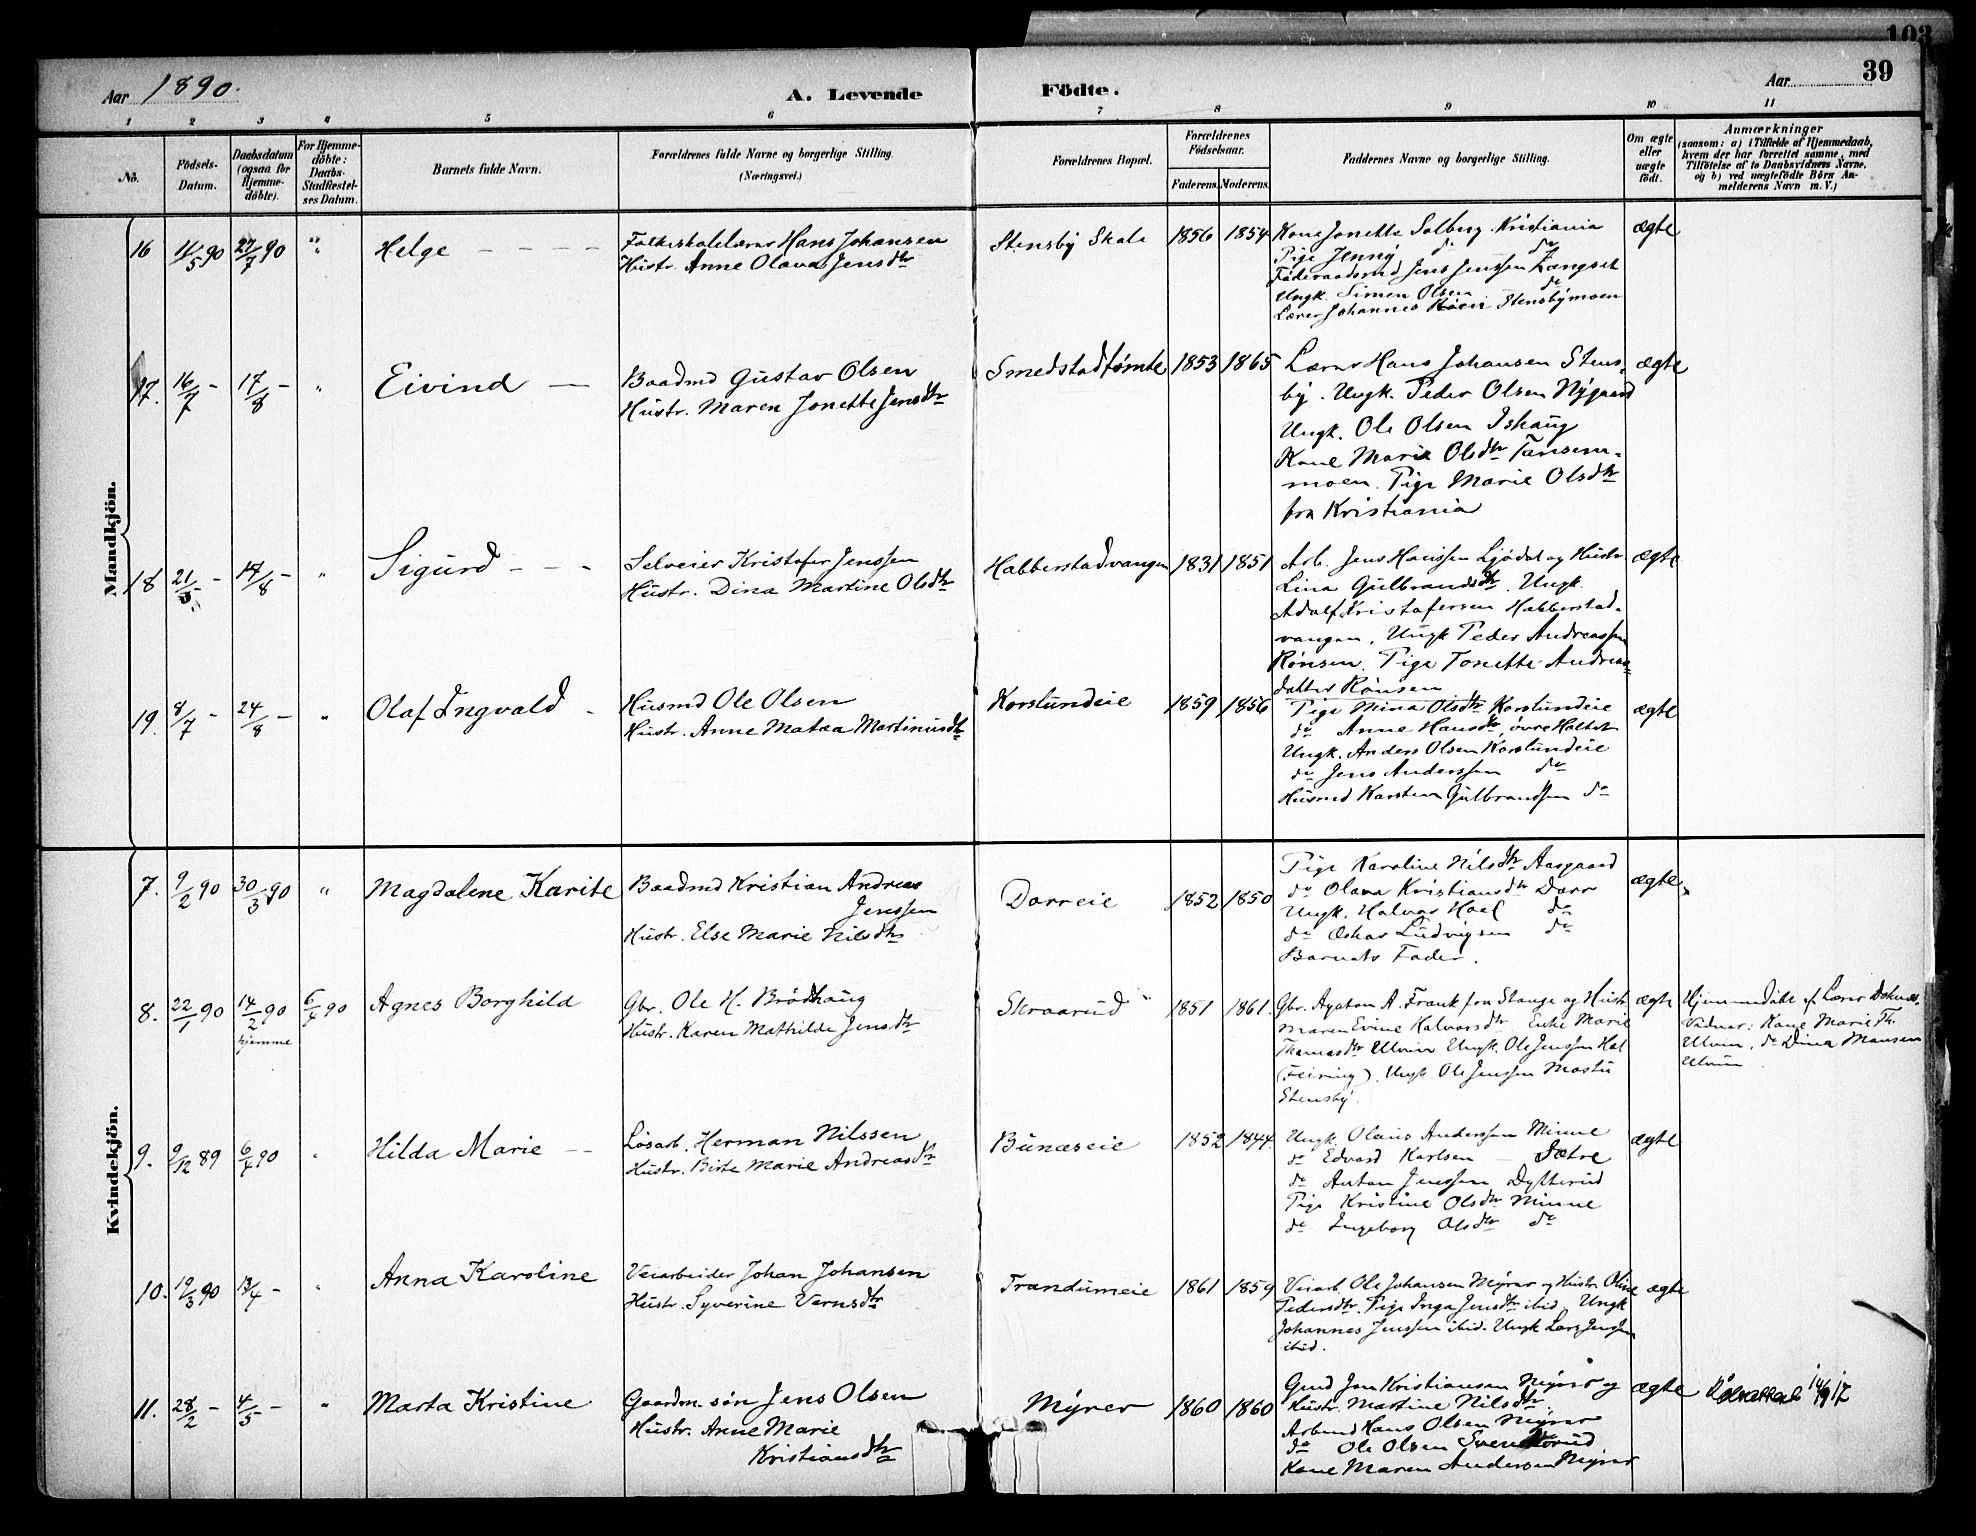 103
Aar 1890.
A. Levende
Födte.
Aar
39
1 2 3 4 5 6 7 8 9 10 11
No.
Födsels-
Datum.
Daabsdatum
(ogsaa for
Hjemme-
döbte).
For Hjemme-
döbte:
Daabs-
Stadfæstel-
ses Datum.
Barnets fulde Navn.
Forældrenes fulde Navne og borgerlige Stilling.
(Næringsvei.)
Forældrenes Bopæl.
Forældrenes
Födselsaar.
Faderens.
Moderens.
Faddernes Navne og borgerlige Stilling.
Om ægte
eller
uægte
födt.
Anmærkninger
(saasom: a) i Tilfælde af Hjemmedaab,
hvem der har forrettet samme, med
Tilföielse af to Daabsvidners Navne,
og b) ved uægtefödte Börn An-
melderens Navn m. V.)
Mandkjön.
16 11/5 90 27/7 90 "
Helge
Folkeskolelærer Hans Johansen
Hustr. Anne Olava Jensdtr
Stensby Skole
1856 1854
Kone Jonette Solberg Kristiania
Pige Jenny do do
Föderaadsmd Jens Jenssen Længset
Ungk. Simen Olsen do
Lærer Johannes Stensbymoen
ægte
17. 16/7 - 17/8 - "
Eivind
Baadmd Gustav Olsen
Hustr. Maren Jonette Jensdtr
Smedstadtømte
1853 1865
Lærer Hans Johansen Stens-
by. Ungk. Peder Olsen Nygaard
Ungk. Ole Olsen Ishaug
Kone Marie Olsdtr Tansem-
moen. Pige Marie Olsdtr
fra Kristiania
ægte
18 21/5 - 17/8 - "
Sigurd
Selveier Kristofer Jenssen
Hustr. Dina Martine Olsdtr
Habberstadvangen
1831 1851
Arb. Jens Hanssen Ljødal og Hustr.
Lina Gulbrandsdtr. Ungk.
Adolf Kristofersen Habberstad-
vangen, Ungk Peder Andreassen
Rönsen. Pige Tonette Andreas-
datter Rönsen
ægte
19. 8/7 - 24/8 - "
Olaf Ingvald
Husmd Ole Olsen
Hustr. Anne Matea Martinusdtr
Korslundeie
1859 1856
Pige Mina Olsdtr Korslundeie
do Anne Hansdtr, övre Holtet
Ungk. Anders Olsen Korslundeie
do Jens Anderssen do
Husmd Karsten Gulbrandssen do
ægte
Kvindekjön.
7. 9/2 90 30/3 90 "
Magdalene Karite
Baadmd Kristian Andreas
Jenssen
Hustr. Else Marie Nilsdtr
Dorreie
1852 1850
Pige Karoline Nilsdtr Aasgaard
do Olava Kristiansdtr Dorr
Ungk. Halvor Hoel do
do Oskar Ludvigsen do
Barnets Fader.
ægte
8. 22/1 90 14/2 90 6/4 90
hjemme
Agnes Borghild
Gbr. Ole H. Brödshaug
Hustr. Karen Mathilde Jensdtr
Skraarud
1851 1861.
Gbr. Agaton A. Frank fra Stange og Hustr.
Maren Evine Halvorsdtr Enke Marie
Thomasdtr Ulvin Ungk. Ole Jenssen Hol
(Feiring). Ungk Ole Jenssen Mostu
Stensby.
ægte
Hjemmedöbt af Lærer
Vidner: Kone Marie Th.
Ulvin, do Dina Monsen
Ulvin
9. 9/12 89 6/4 90 "
Hilda Marie
Lösarb. Herman Nilssen
Hustr. Birte Marie Andreasdtr
Bunæseie
1852 1844
Ungk. Olaus Anderssen Minne
do Edvard Karlsen Sætre
do Anton Jenssen Dytterud
Pige Kristine Olsdtr Minne
do Ingeborg Olsdtr do
ægte
10. 19/3 90 13/4 - "
Anna Karoline
Veiarbeider Johan Johansen
Hustr. Syverine Vernsdtr
Trandumeie
1861 1859
Veiarb. Ole Johansen Myrer og Hustr. Oline
Pedersdtr. Pige Inga Jensdtr ibid. Ungk
Johannes Jenssen ibid. Ungk Lars Jenssen
ibid.
ægte
11. 28/2 - 4/5 - "
Marta Kristine
Gaardm. sön Jens Olsen
Hustr. Anne Marie
Kristiansdtr
Myrer
1860 1860
Gmd Jon Kristiansen Myrer og
Hustr. Martine Nilsdtr.
Arbmd Hans Olsen Myrer
do Ole Olsen
Kone Maren Andersen Myrer
ægte